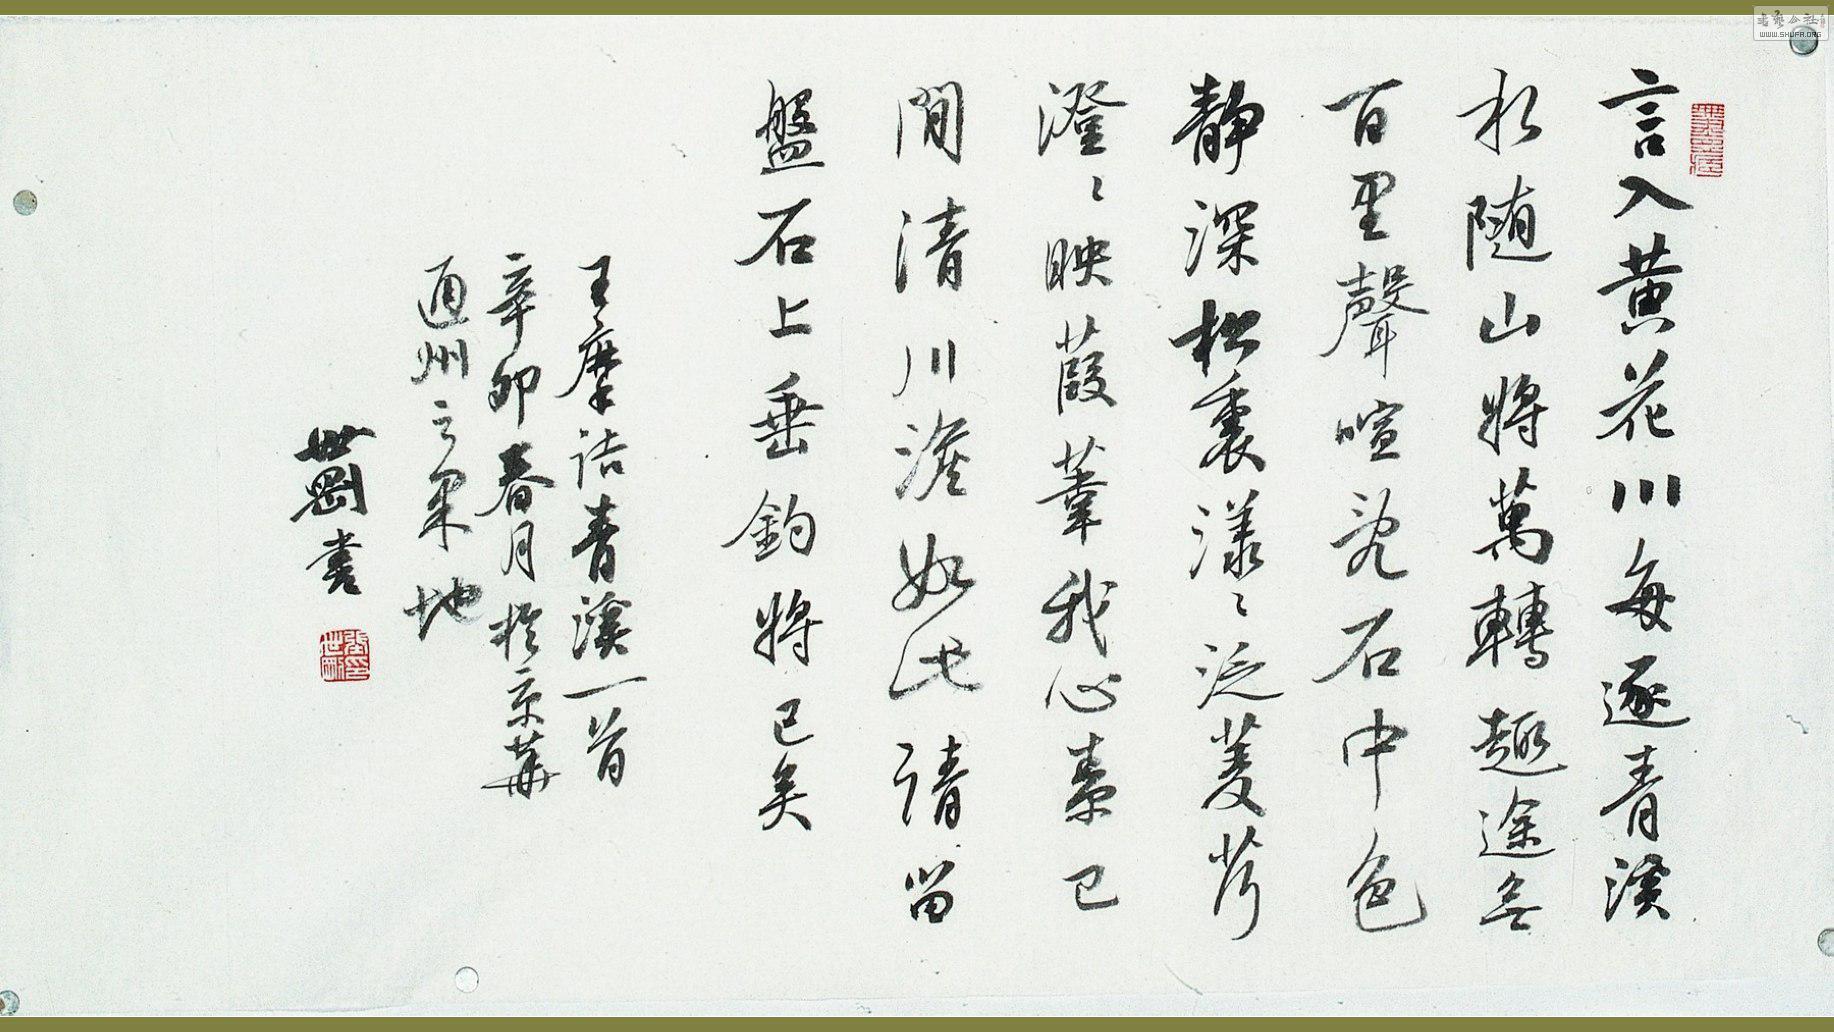 言入黄花川每逐青溪
水随山將萬轉趣途無
百里聲喧亂石中色
静深松裏漾〻泛菱荇
澄〻映葭葦我心素已
閒清川澹如此請留
盤石上垂釣將已矣
王摩詰青溪一首
辛卯春月於京華
通州之地
世剛書
WWW.SHUFA.ORG